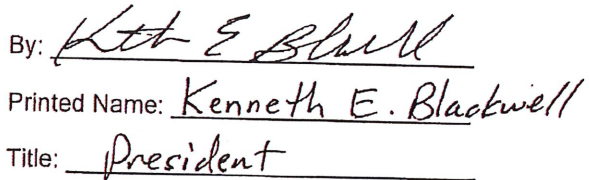 By: Kenneth E Blackwell
Printed Name: Kenneth E. Blackwell
Title: President